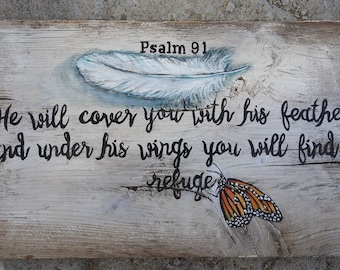 Psalm 91
He will cover you with his feathe
and under his wings you will find
refuge